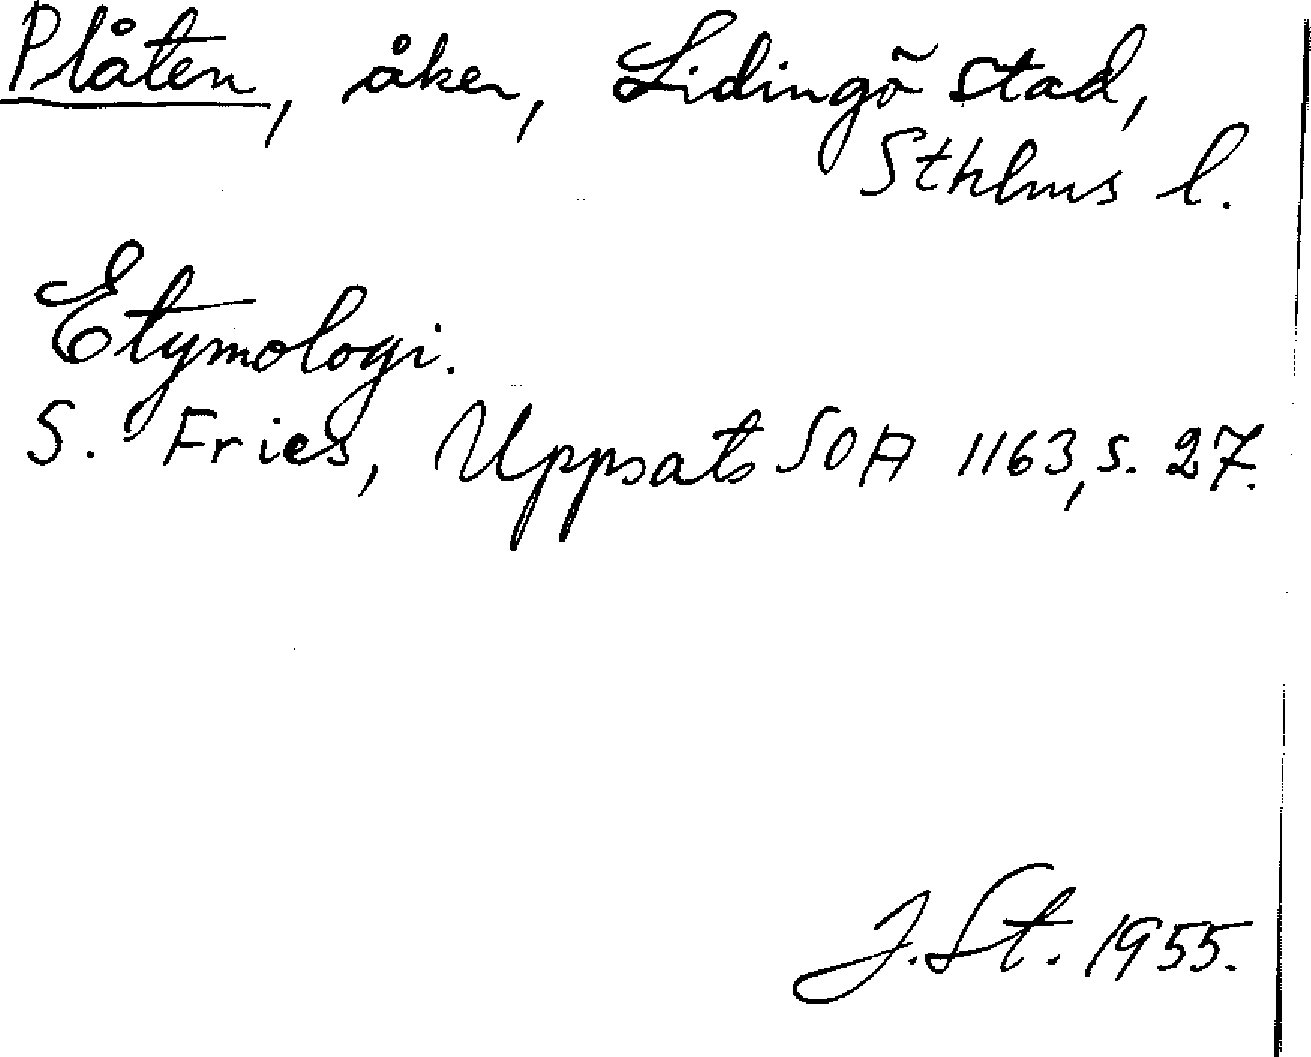 Plåten, åker, Lidingö stad,
Sthlms l.
Etymologi.
S. Fries, Uppsats SOA 1163, s. 27.
J. St. 1955.